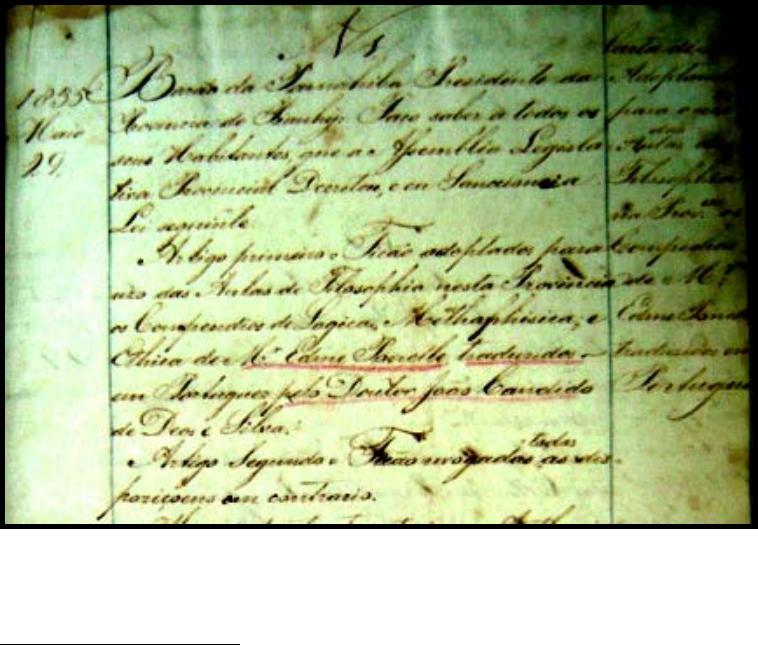 1835
Maio
29
Barão da Parnahiba Presidente da
Provincia do Piauhy. Faço saber a todos os
seus Habitantes, que a Assemblea Legisla
tiva Provincial Decretou, e eu Sanccionei a
Lei seguinte.
Artigo primeiro. Ficão adoptados para
uso das Aulas de Filosophia nesta Provincia
os Compendios de Logica, Methaphisica, e
Ethica de Mr. Edme Ponelle traduzidos
em Portuguez pelo Doutor João Candido
de Deos e Silva.
Artigo Segundo. Ficão revogadas todas as dis-
poziçoens em contrario.
para o uso
das
Aulas de
Filosophia
na Prov.
Compendios
de Mr.
Edme
traduzidos em
Portuguez